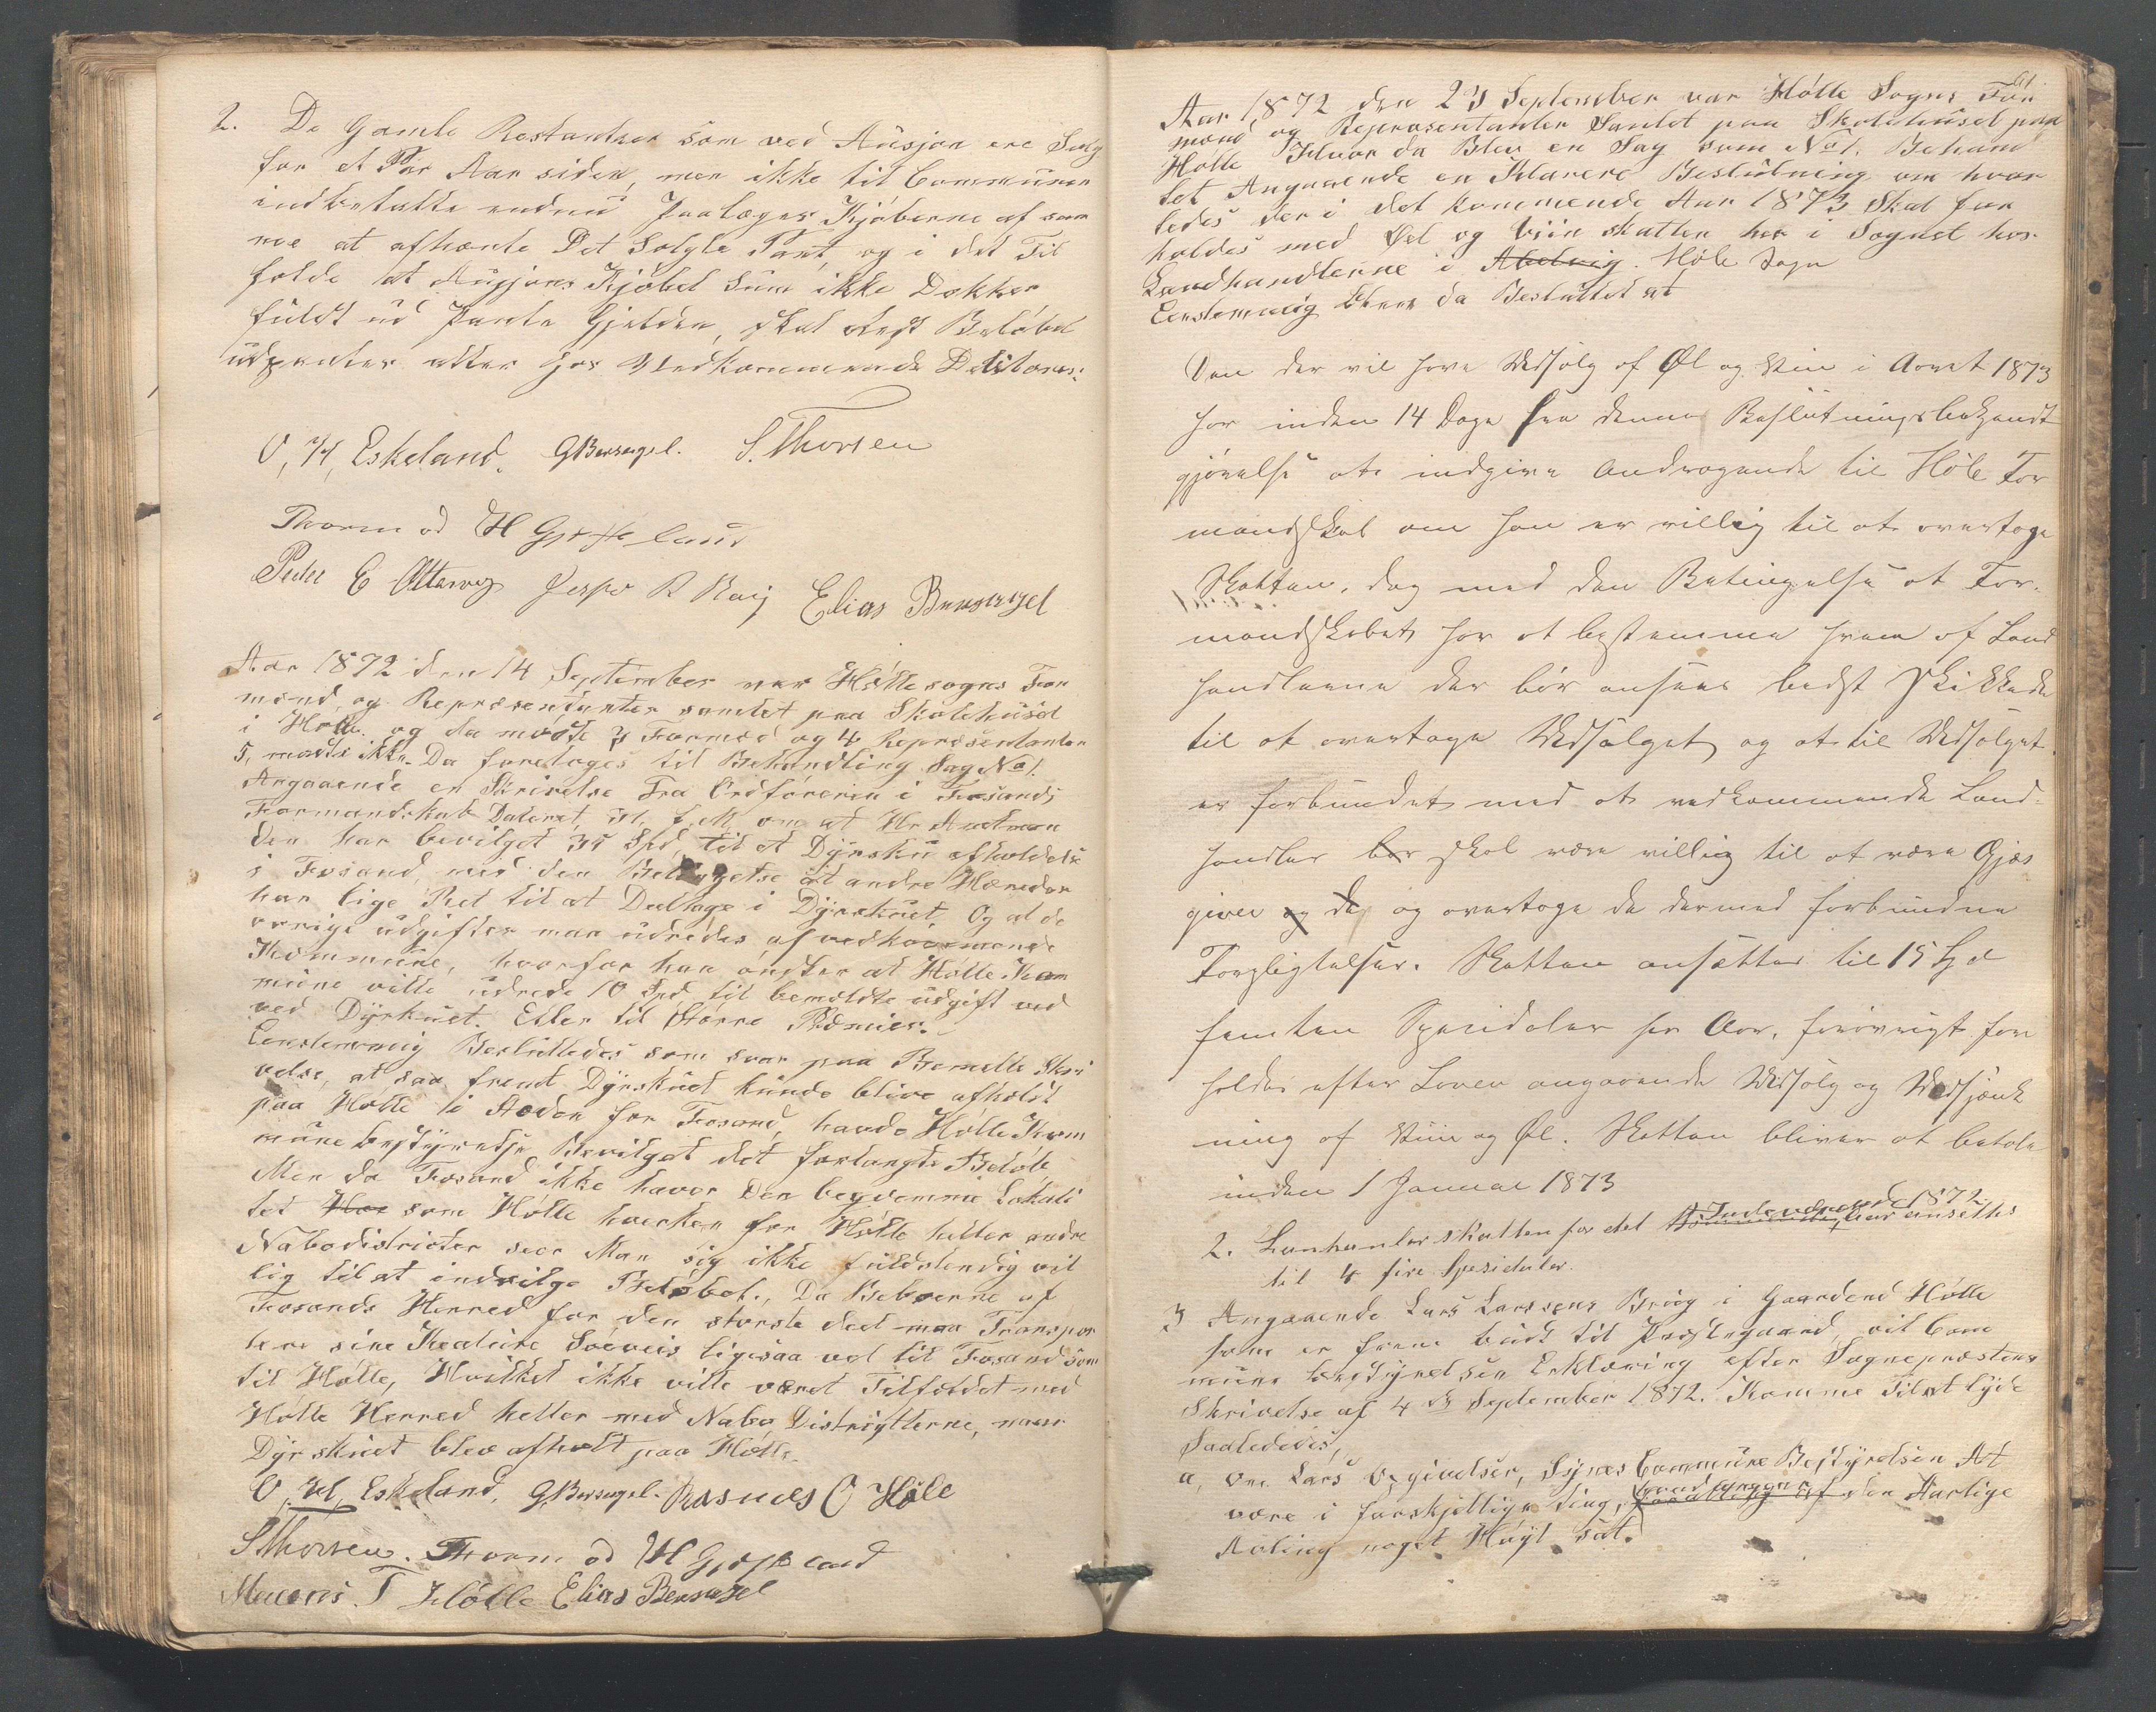 2. De Gamle Restantser som ved Ausjon ere Solg
for et Par Aar siden, men ikke til Communen
indbetalte endnu Paalæges Kjøberne af sam
me at afhænte Det Solgte Pant, og i det Til
fælde at Ausjons Kjøbet Sum ikke Dekker
fuldt ud Pante Gjelden, skal Rest Beløbet
udpantes atter hos Vedkommende Debitores.
O, H, Eskeland. GBersagel. S. Thorsen
Thorm od H Gjesteland
Peder E Ottersvig Jesper R Raig Elias Bersagel
Aar 1872 den 14 September var Høllesogns For
mænd, og Repræsentanter samlet paa Skolehuset
i Hølle. og da mødte 3 Formed og 4 Repræsentanter
5, mødte ikke. Da foretoges til Behandling Sag No 1.
Angaaende en Skrivelse Fra Ordføreren i Fosands
Formandskab Dateret, f. M, om at Hr Amtman
den har bevilget 35 Spd, til et Dyrsku afholdelse
i Fosand, med den Betingelse at andre Hæreder
har lige Ret til at Deeltage i Dyrskuet, Og at de
øvrige udgifter maa udredes af vedkommende
Kommune, hvorfor han ønsker at Hølle Kom
mune ville udrede 10 Spd til bemældte udgift ved
ved Dyrkuet. Eller til Større Præmier.
Eenstemmig Besluttedes som svar paa Bemelte Skri
velse, at saa fremt Dyrskuet kunde blive afholdt
paa Hølle i Steden for Fosand, havde Hølle Kom
munebestyrelse Bevilget det forlangte Beløb
Men da Fosand ikke haver Den beqvemme Lokali
tet Har som Hølle hverken for Hølle heller andre
Nabodistricter seer Man sig ikke fuldstendig vil
lig til at indvilge Beløbet., Da Beboerne af
Fosands Herred for den største deel maa Transpor
tere sine Kreature Søeveis ligesaa vel til Fosand som
til Hølle, Hvilket ikke ville været Tilfeldet med
Hølle Herred heller med Nabo Distrigterne, naar
Dyrskuet blev afholt paa Hølle.
O, H, Eskeland, GBersagel. Rasmus O Høle
SThorsen. Thorm od H Gjesteland
Maurits. T Hølle Elias Bersagel
61
Aar 1872 den 23 September var Hølle Sogns For
mænd og Repræsentanter Samlet paa Skolehuset paa
Hølle Hvor da Blev en Sag som No 1. Behand
let Angaaende en Klarere Beslutning om hvor
ledes der i det kommende Aar 1873 Skal for
holdes med Øel og Viin skatten her i Sognet hos
Landhandlerne i Abelsvig. Høle Sogn
Eenstemmig blev da Besluttet at
Den der vil have Udsalg af Øl og Vin i Aaret 1873
har inden 14 Dage fra denne Beslutningsbekjendt
gjørelse at indgive Andragende til Høle For
mandskab om han er villig til at overtage
Skatten, dog med den Betingelse at For-
mandskabet har at bestemme hvem af Land
handlerne der bør ansees bedst skikkede
til at overtage Udsalget og at til Udsalget
er forbundet med at vedkommende Land-
handler bør skal være villig til at være Gjæs
giver og de og overtage de dermed forbundne
Forpligtelser. Skatten ansættes til 15 Spd
femten Speciedaler per Aar, forøvrigt for
holdes efter Loven angaaende Udsalg og Udskjænk
ning af Viin og Øl. Skatten bliver at betale
inden 1 Januar 1873
2. Lanhanlerskatten for det Indeværende 1872 Aar ansettes
til 4 fire Spesidaler.
3 Angaaende Lars Larssens Brug i Gaarden Hølle
som er frem budt til Prestegaard, vil Com
mune bestyrelsen Erklæring efter Sognepræstens
Skrivelse af 4de September 1872. Komme Til at lyde
Saaledes,
a, om Lars Opgivelser, Synes Commune Bestyrelsen At
være i forskjellige ting, den Aarlige
Avling noget Høyt sat.